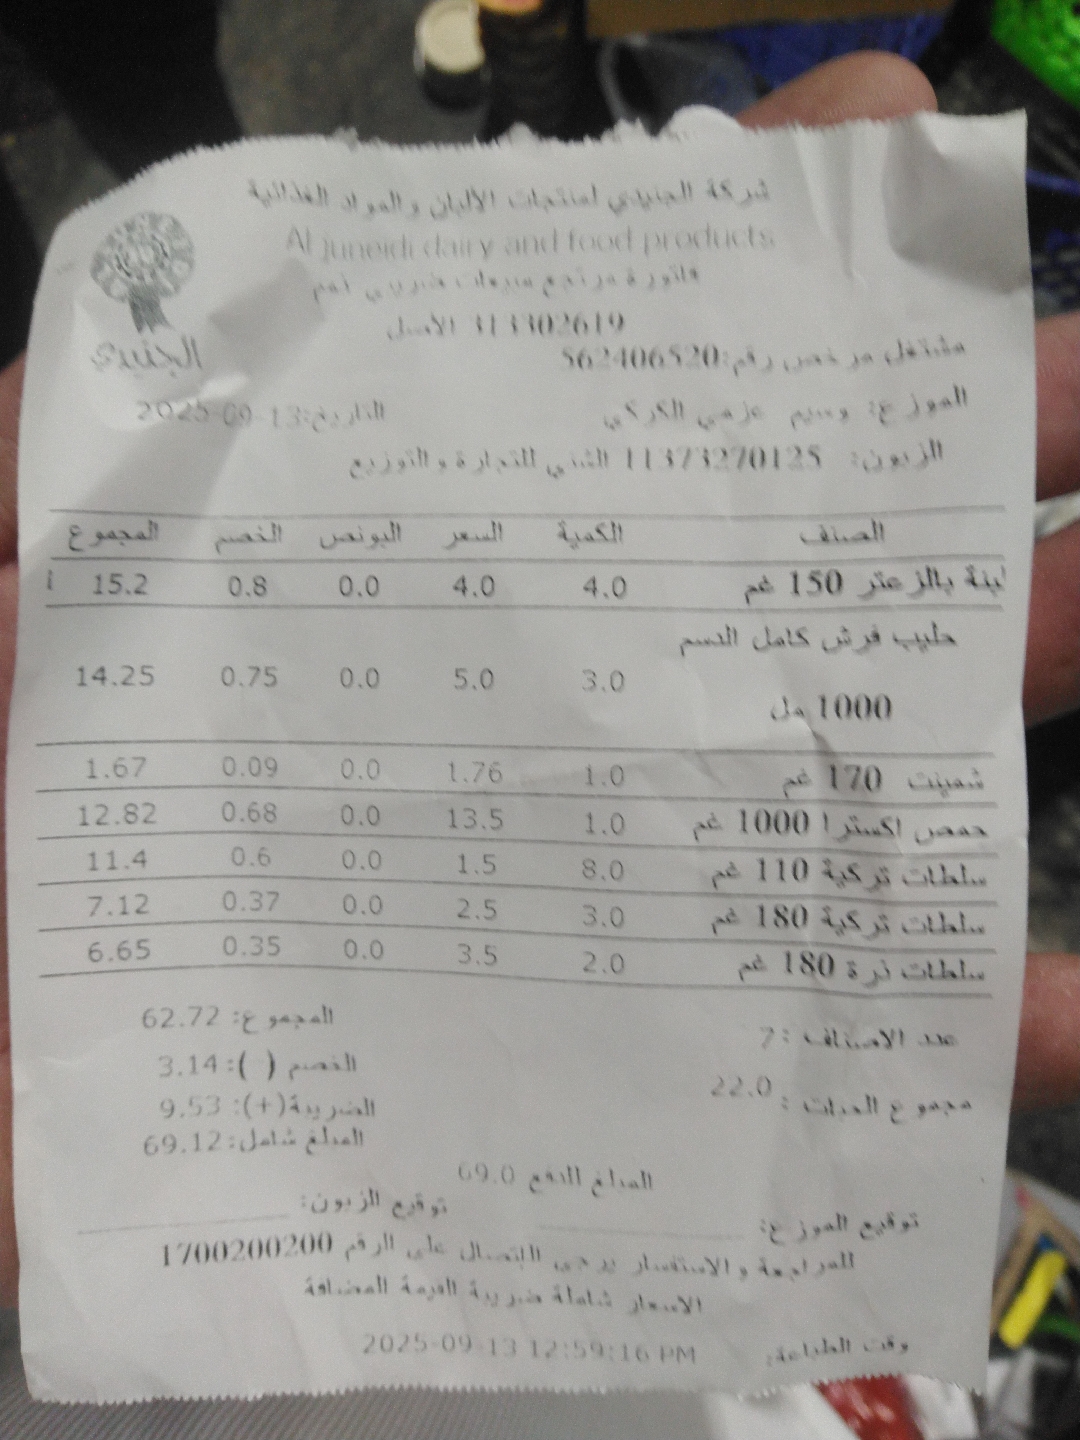 شركة الجنيدي لمنتجات الألبان والمواد الغذائية
Al juneidi dairy and food products
الجنيدي
فاتورة مرتجع مبيعات ضريبي ذمم
313302619 الأصل
مشتغل مرخص رقم:562406520
الموزع: وسيم عزمي الكركي التاريخ:2025-09-13
الزبون: 11373270125 للتجارة والتوزيع
الصنف الكمية السعر البونص الخصم المجموع
لبنة بالزعتر 150 غم 4.0 4.0 0.0 0.8 15.2
حليب فرش كامل الدسم
3.0 5.0 0.0 0.75 14.25
1000 مل
شمينت 170 غم 1.0 1.76 0.0 0.09 1.67
حمص اكسترا 1000 غم 1.0 13.5 0.0 0.68 12.82
سلطات تركية 110 غم 8.0 1.5 0.0 0.6 11.4
سلطات تركية 180 غم 3.0 2.5 0.0 0.37 7.12
سلطات ذرة 180 غم 2.0 3.5 0.0 0.35 6.65
عدد الاصناف :7 المجموع: 62.72
الخصم ( ): 3.14
مجموع الحبات : 22.0 الضريبة(+): 9.53
المبلغ شامل: 69.12
المبلغ للدفع 69.0
توقيع الموزع: توقيع الزبون:
للمراجعة والاستفسار يرجى الاتصال على الرقم 1700200200
الاسعار شاملة ضريبة القيمة المضافة
وقت الطباعة: 2025-09-13 12:59:16 PM